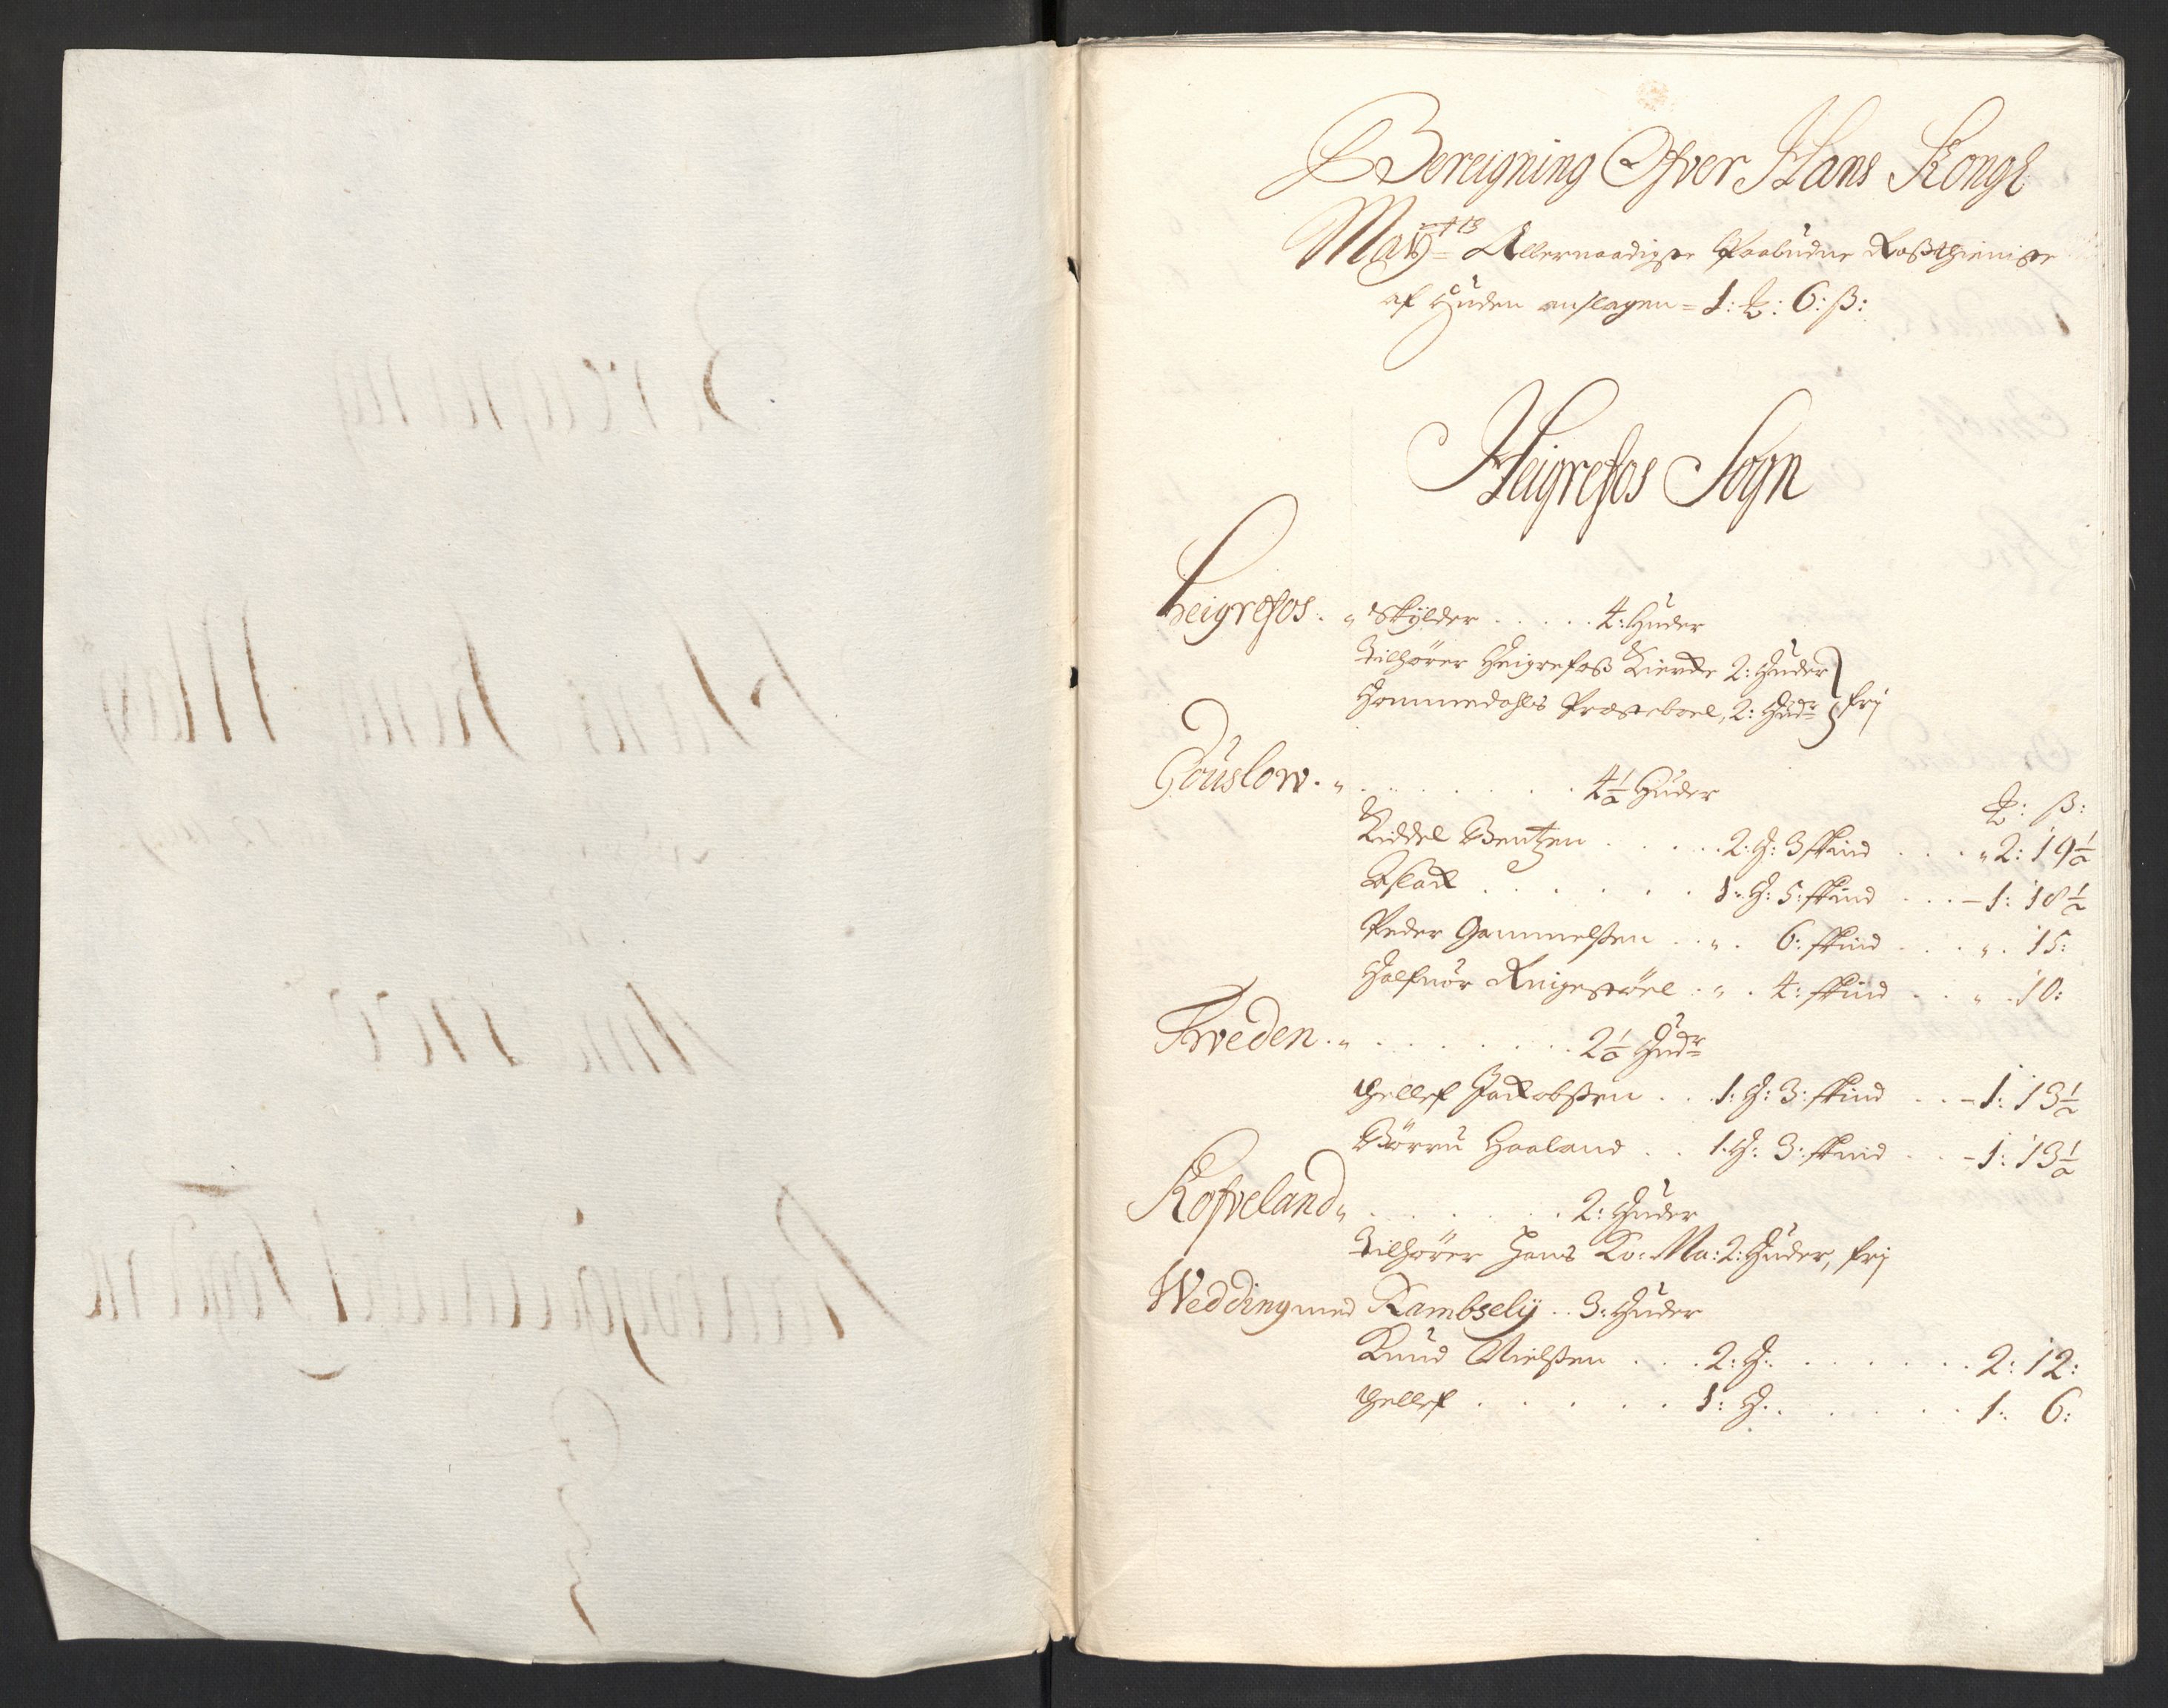 Bereigning Ofver Hans Kongl
Mayts Allernaadigste Paabudne Roßthieniste
af Huden anslagen = 1: ₰: 6: ß:
Heigrefos Sogn
Heigrefos. " Skylder . . . . . 4: Huder
Tilhører Heigrefoß Kierke 2: Huder } frj
Hommedahls Præsteboel, 2: Hudr
Gouslow. " . . . . . . . 4½ Huder
₰: ß:
Kiddel Bentzen . . . . . 2: H: 3 skind . . . " 2: 19½
Aslack . . . . . . . 1: H: 5: skind . . . - 1: 18½
Peder Gammelßen . . " . 6: skind . . . " . 15:
Halfuor Knigestöel . " . 4: skind . . " . 10:
Tweden. " . . . . . . . . 2½ Hudr
Gellef Jackobßen . . 1: H: 3: skind . . - 1: 13½
Börru Haaland . . 1: H: 3: skind . . - 1: 13½
Kofveland " . . . . . . . 2: Huder
Tilhører Hans Ko: Ma: 2: Huder, frj
Wedding med Kambselÿ . . 3: Huder
Knud Nielßen . . . 2: H: . . . . . . . 2: 12:
Gellef . . . . . . 1: H: . . . . . . 1: 6: